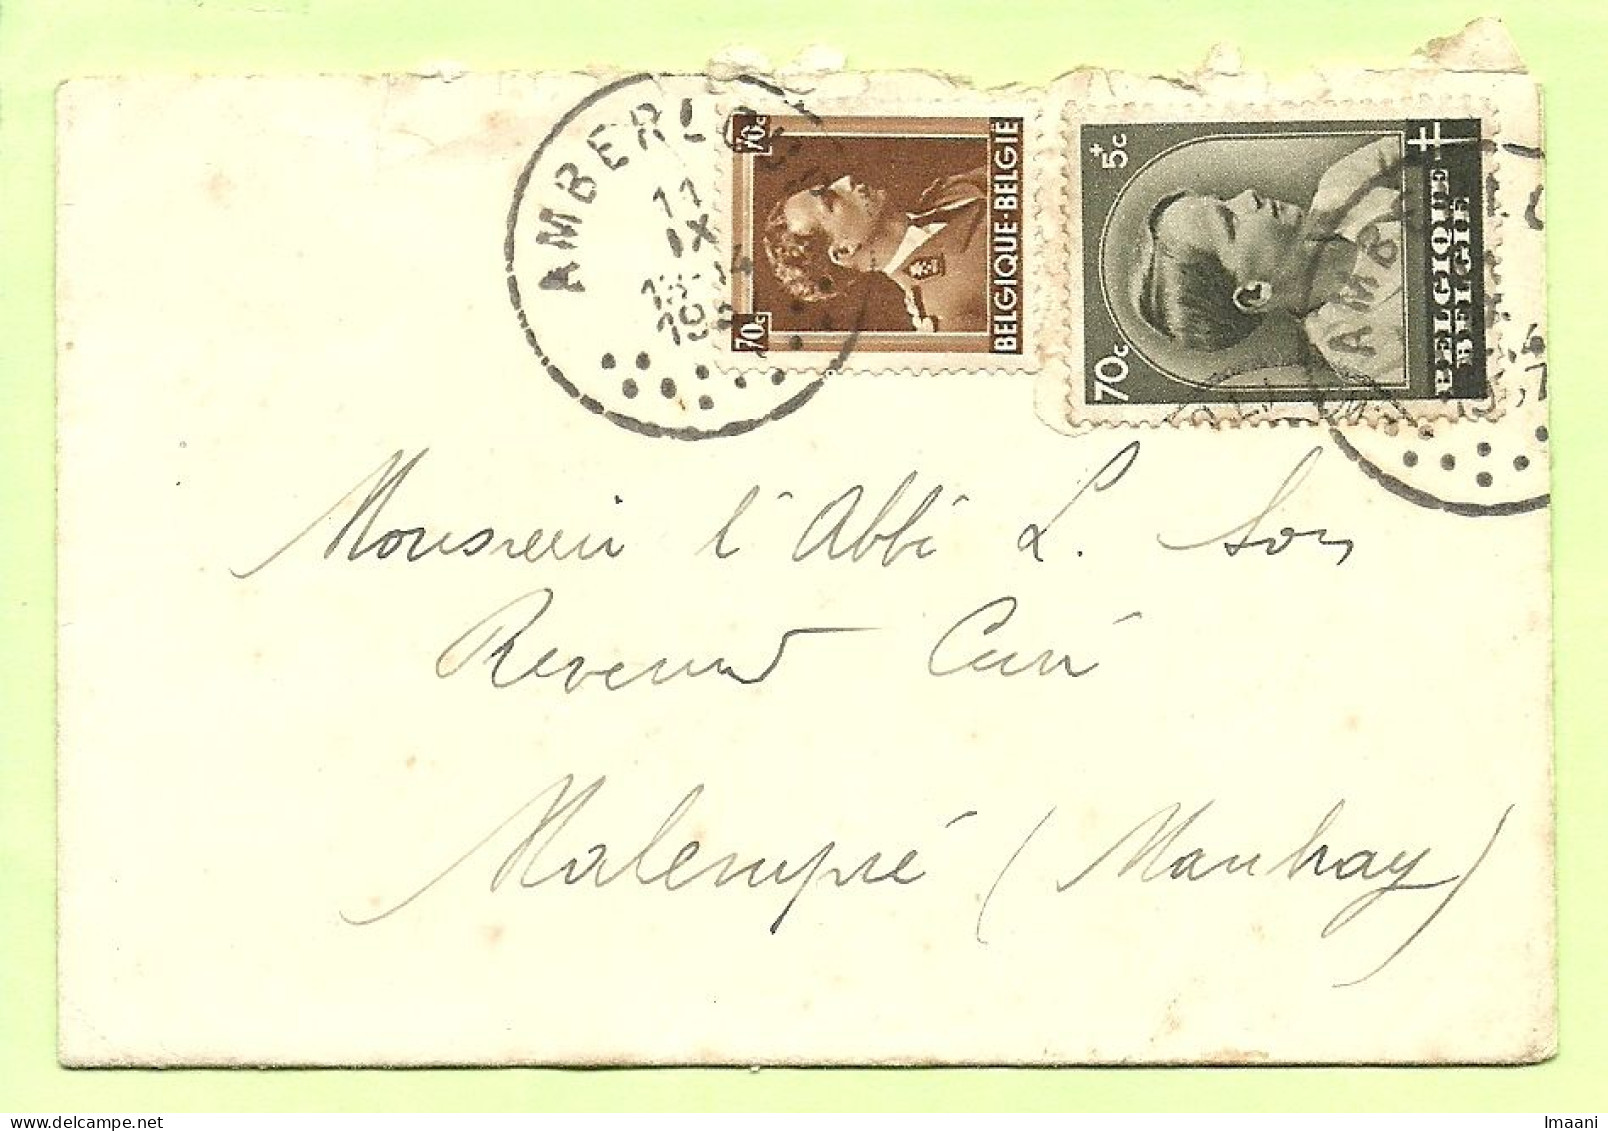 AMBERLOUP
11
IX
13-14
19
70c
70c
BELGIQUE-BELGIË
70c +5c
BELGIQUE
BELGIË
AMB
Monsieur l'Abbé L. Son
Révérend Curé
Malempré (Manhay)
Imaani